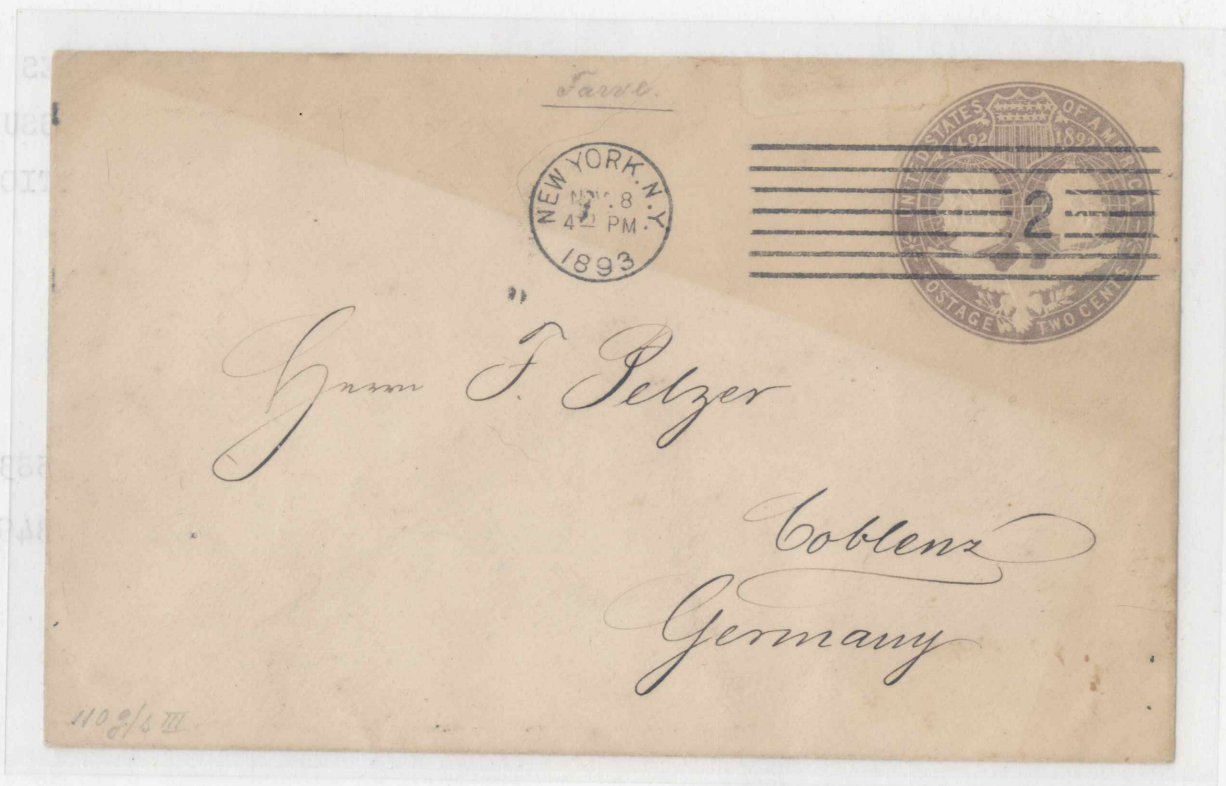 NEW YORK. N.Y.
NOV. 8
4 PM
1893
UNITED STATES OF AMERICA
1492 1892
2
POSTAGE TWO CENTS
Herrn F. Pelzer
Coblenz
Germany